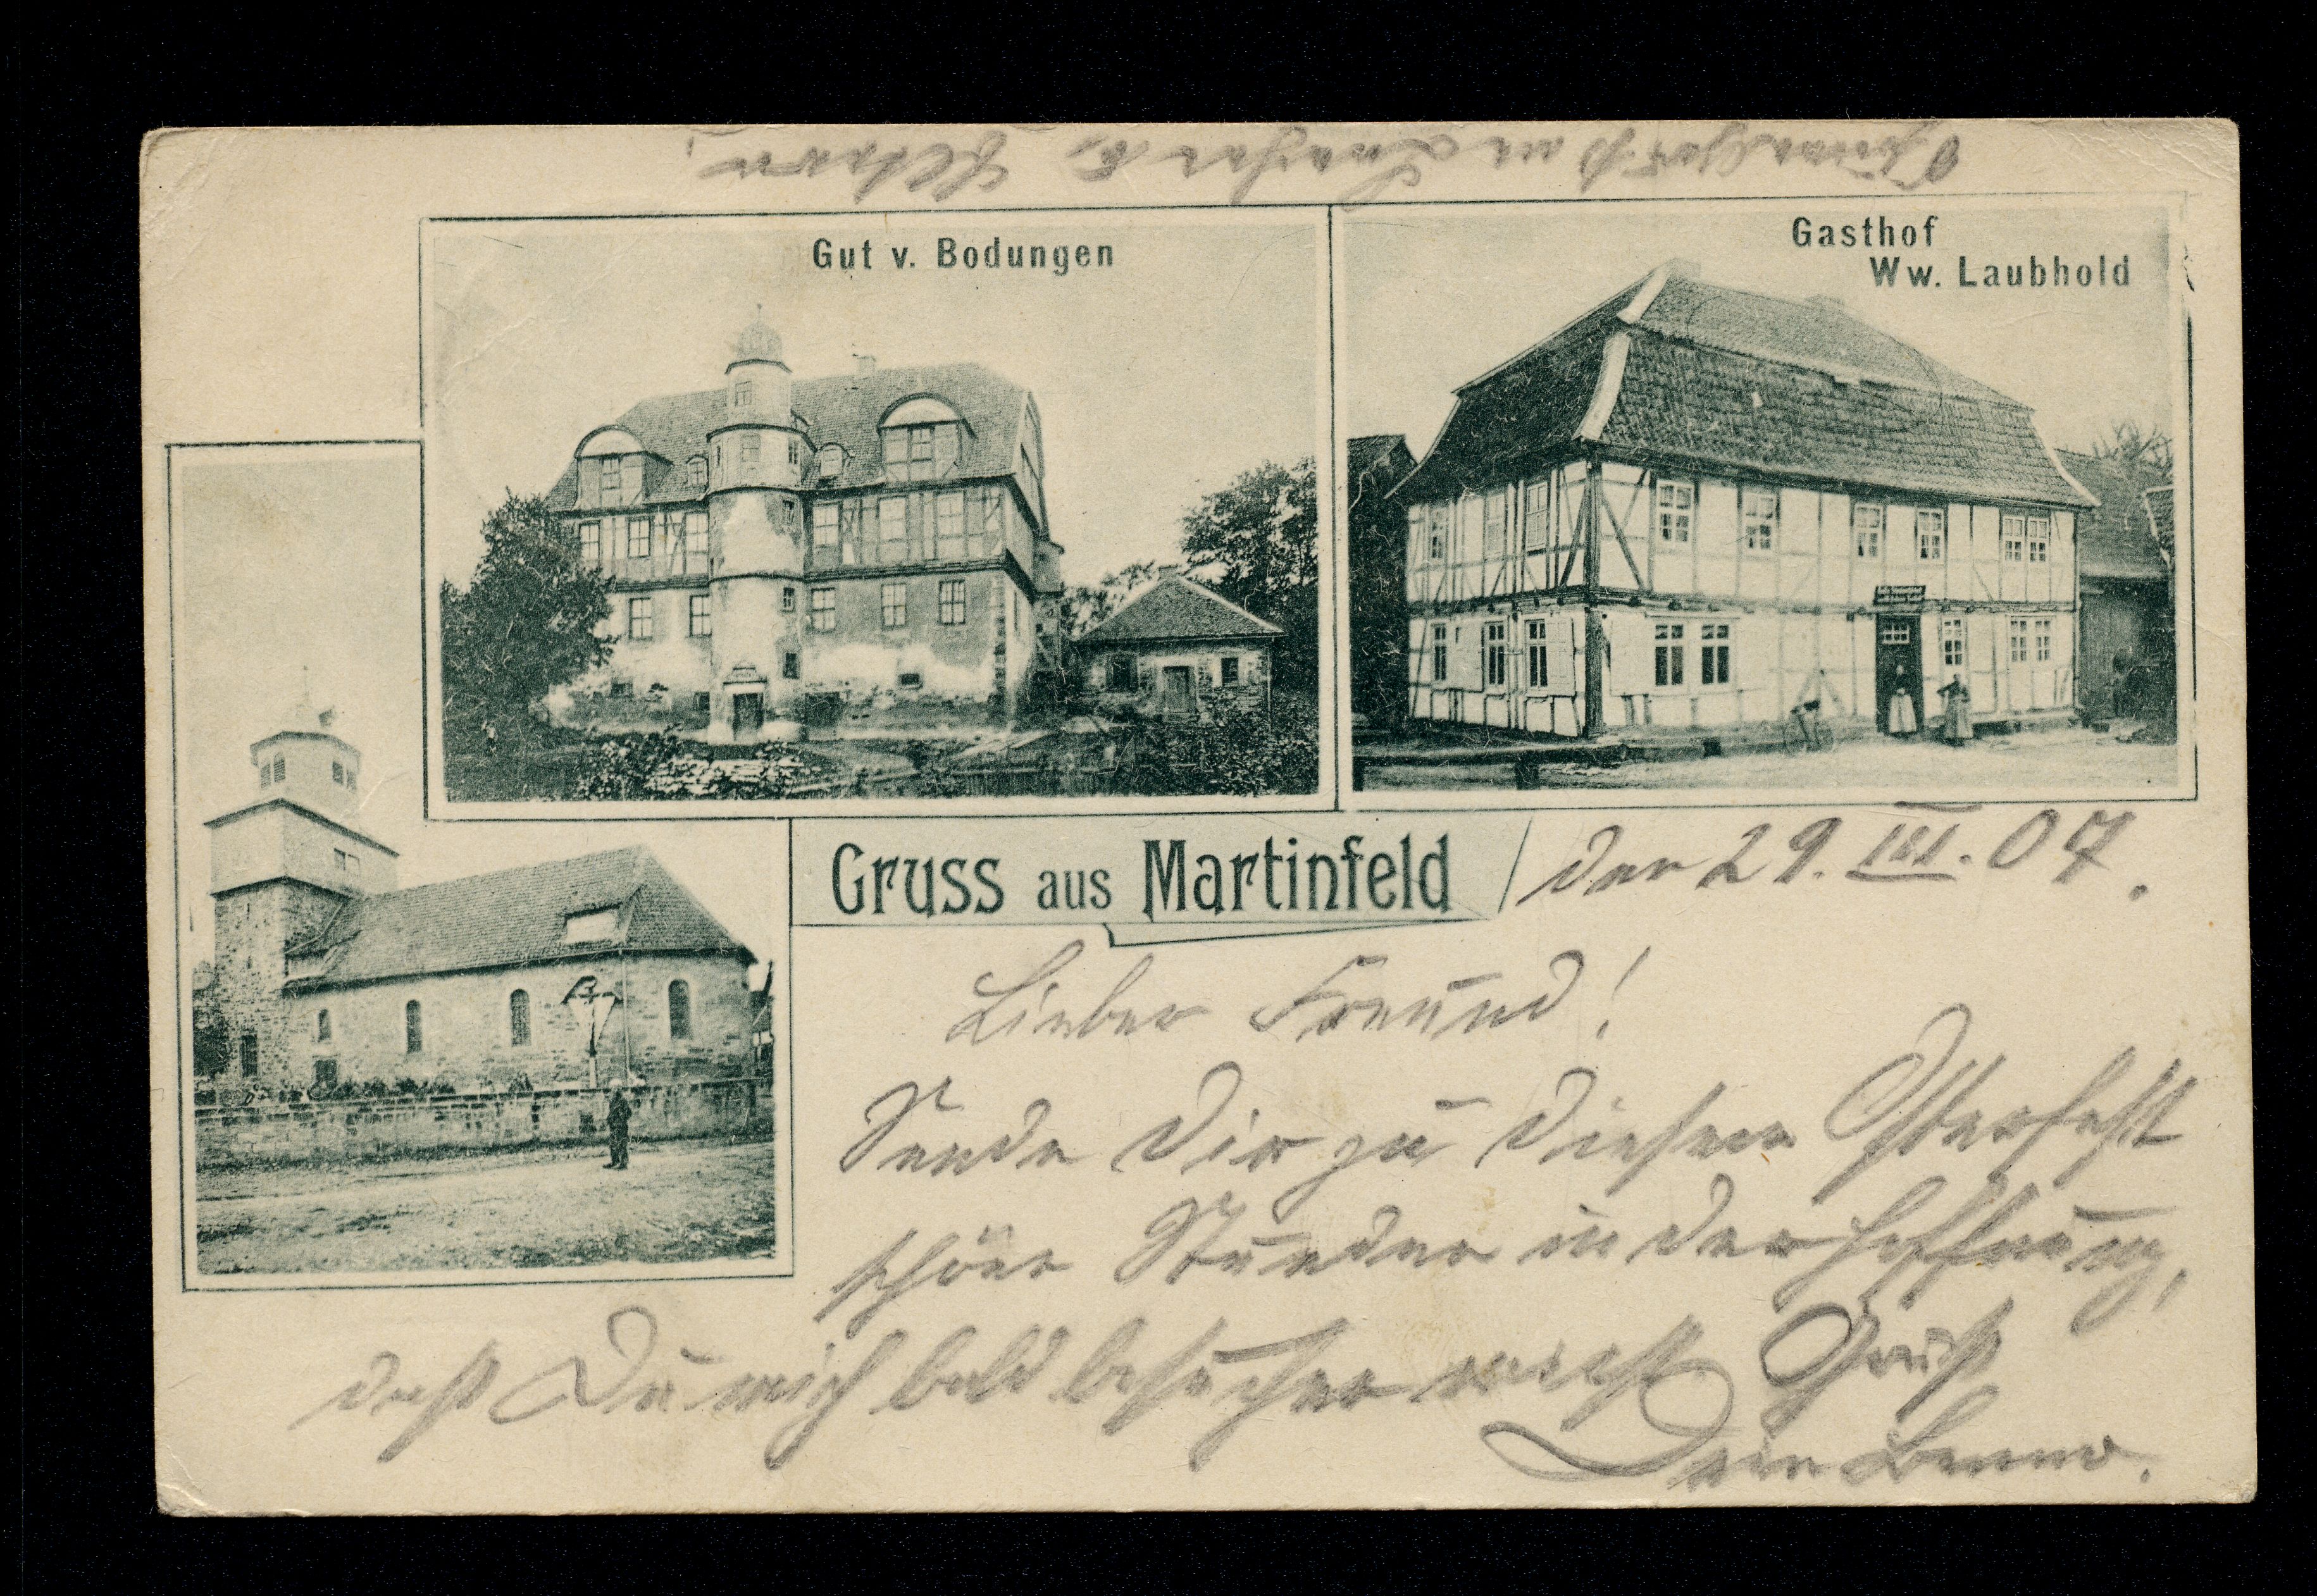 Gut v. Bodungen
Gasthof
Ww. Laubhold
Gruss aus Martinfeld
den 29. III. 07.
Lieber Freund!
Sende Dir zu diesem Osterfest
schöne Stunden in der Hoffnung,
daß Du mich bald besuchen wirst Gruß
Dein Benno.